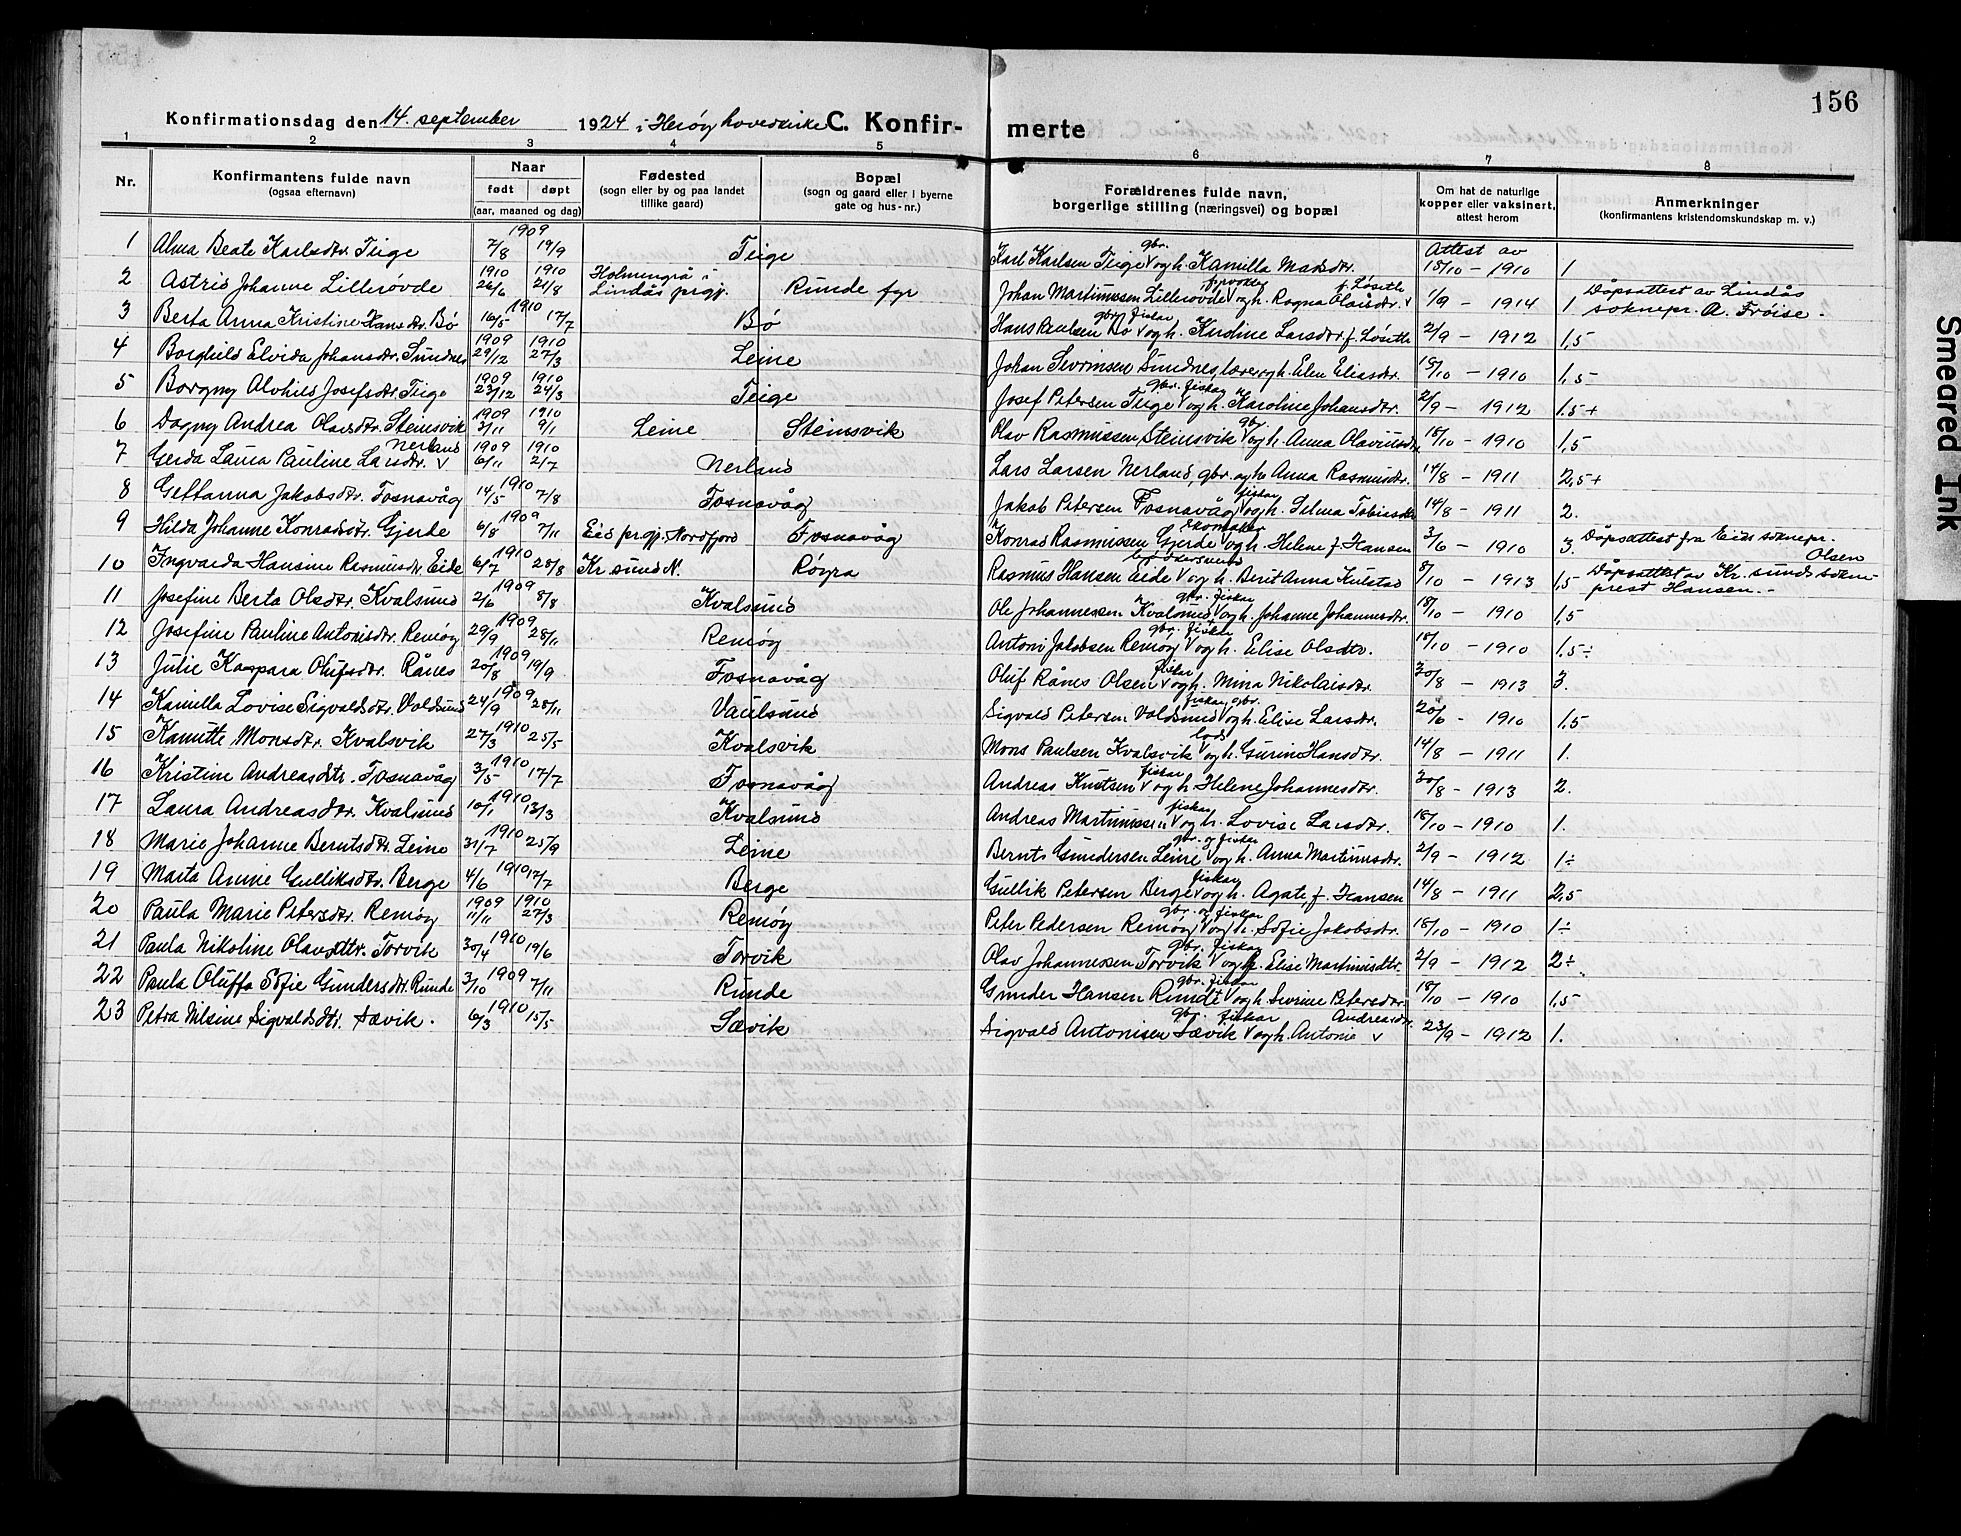 156
Konfirmationsdag den 14. september 1924 i Herøy hovedkirke C. Konfirmerte
1 2 3 4 5 6 7 8
Nr. Konfirmantens fulde navn (ogsaa efternavn) Naar født døpt (aar, maaned og dag) Fødested (sogn eller by og paa landet tillike gaard) Bopæl (sogn og gaard eller i byerne gate og hus-nr.) Forældrenes fulde navn, borgerlige stilling (næringsvei) og bopæl Om hat de naturlige kopper eller vaksinert, attest herom Anmerkninger (konfirmantens kristendomskundskap m. v.)
1 Alma Beate Karlsdtr. Teige 1909 7/8 19/9 Teige Karl Karlsen Teige gbr. og h. Kamilla Madsdtr. Attest av 18/10 - 1910 1
2 Astrid Johanne Lillerøvde 1910 26/6 1910 21/8 Holmengrå i Lindås prgj. Runde fyr Johan Martinussen Lillerøvde og h. Ragna Olaisdtr. f. Løseth 1/9 - 1914 1 Dåpsattest av Lindås soknepr. A. Frøise.
3 Berta Anna Kristine Hansdtr. Bø 1910 16/5 17/7 Bø Hans Paulsen Bø gbr. fiskar og h. Kardine Larsdtr f. Løseth 2/9 - 1912 1,5
4 Borghild Elvida Johansdtr. Sundnes 1909 29/12 1910 27/3 Leine Johan Sevrinsen Sundnes, lærer og h. Elen Eliasdtr. 18/10 - 1910 1,5
5 Borgny Alvhild Josefsdtr. Teige 1909 23/12 1910 24/3 Teige Josef Petersen Teige gbr. fiskar og h. Karoline Johansdtr. 2/9 - 1912 1,5+
6 Dagny Andrea Olavsdtr. Steinsvik 1909 3/11 1910 9/1 Leine Steinsvik Olav Rasmussen Steinsvik gbr. og h. Anna Olavinusdtr 18/10 - 1910 1,5
7 Gerda Laura Pauline Larsdtr. Nerland 1909 6/11 1910 2/7 Nerland Lars Larsen Nerland, gbr. og h. Anna Rasmusdtr. 14/8 - 1911 2,5+
8 Gettanna Jakobsdtr. Fosnavåg 1910 14/5 7/8 Fosnavåg Jakob Petersen Fosnavåg fiskar og h. Selma Tobiasdtr 14/8 - 1911 2.
9 Hilda Johanne Konradsdtr. Gjerde 1909 6/8 7/11 Eid prgj. Nordfjord Fosnavåg Konrad Rasmussen Gjerde skomaker og h. Helene f. Hansen 3/6 - 1910 3. Dåpsattest fra Eids soknepr. Olsen
10 Ingvarda Hansine Rasmusdtr. Eide 1910 6/7 28/8 Kr. sund N. Røyra Rasmus Hansen Eide og h. Berit Anna Kulstad 8/10 - 1913 1,5 Dåpsattest av Kr. sunds sokneprest Hansen.
11 Josefine Berta Olsdtr. Kvalsund 1909 2/6 8/8 Kvalsund Ole Johannessen Kvalsund gbr. fiskar og h. Johanne Johannesdtr. 18/10 - 1910 1,5
12 Josefine Pauline Antonisdtr. Remøy 1909 29/9 28/11 Remøy Antoni Jakobsen Remøy gbr. fiskar og h. Elise Olsdtr. 18/10 - 1910 1,5÷
13 Julie Kaspara Olufsdtr. Rånes 1909 20/8 19/9 Fosnavåg Oluf Rånes Olsen fiskar og h. Mina Nikolaisdtr. 30/8 - 1913 3.
14 Kamilla Lovise Sigvaldsdtr. Voldsund 1909 24/9 28/11 Vaulsund Sigvald Petersen Voldsund fiskar gbr. og h. Elise Larsdtr. 20/6 - 1910 1,5
15 Kamitte Monsdtr. Kvalsvik 1910 27/3 25/5 Kvalsvik Mons Paulsen Kvalsvik lods og h. Gurine Hansdtr. 14/8 - 1911 1.
16 Kristine Andreasdtr. Fosnavåg 1910 3/5 17/7 Fosnavåg Andreas Knutsen fiskar og h. Helene Johannesdtr. 30/8 - 1913 2.
17 Laura Andreasdtr. Kvalsund 1910 10/1 13/3 Kvalsund Andreas Martinussen fiskar og h. Lovise Larsdtr. 18/10 - 1910 1.
18 Marie Johanne Berntsdtr. Leine 1910 31/7 25/9 Leine Bernts Gundersen Leine gbr. og fiskar og h. Anna Martinusdtr. 2/9 - 1912 1÷
19 Marta Anine Gulliksdtr. Berge 1910 4/6 17/7 Berge Gullik Petersen Berge fiskar og h. Agate f. Hansen 14/8 - 1911 2,5
20 Paula Marie Petersdtr. Remøy 1909 11/11 1910 27/3 Remøy Peter Pedersen Remøy gbr. og fiskar og h. Sofie Jakobsdtr. 18/10 - 1910 1÷
21 Paula Nikoline Olavsdtr. Torvik 1910 30/4 19/6 Torvik Olav Johannessen Torvik gbr. fiskar og h. Elise Martinusdtr. 2/9 - 1912 2÷
22 Paula Oluffa Sofie Gundersdtr. Runde 1909 3/10 7/11 Runde Gunder Hansen Runde gbr. fiskar og h. Sevrine Petersdtr. 18/10 - 1910 1,5
23 Petra Nilsine Sigvaldsdtr. Sævik. 1910 6/3 15/5 Sævik Sigvald Antonisen Sævik gbr. fiskar og h. Antonie Andreasdtr. 23/9 - 1912 1.
Smeared Ink